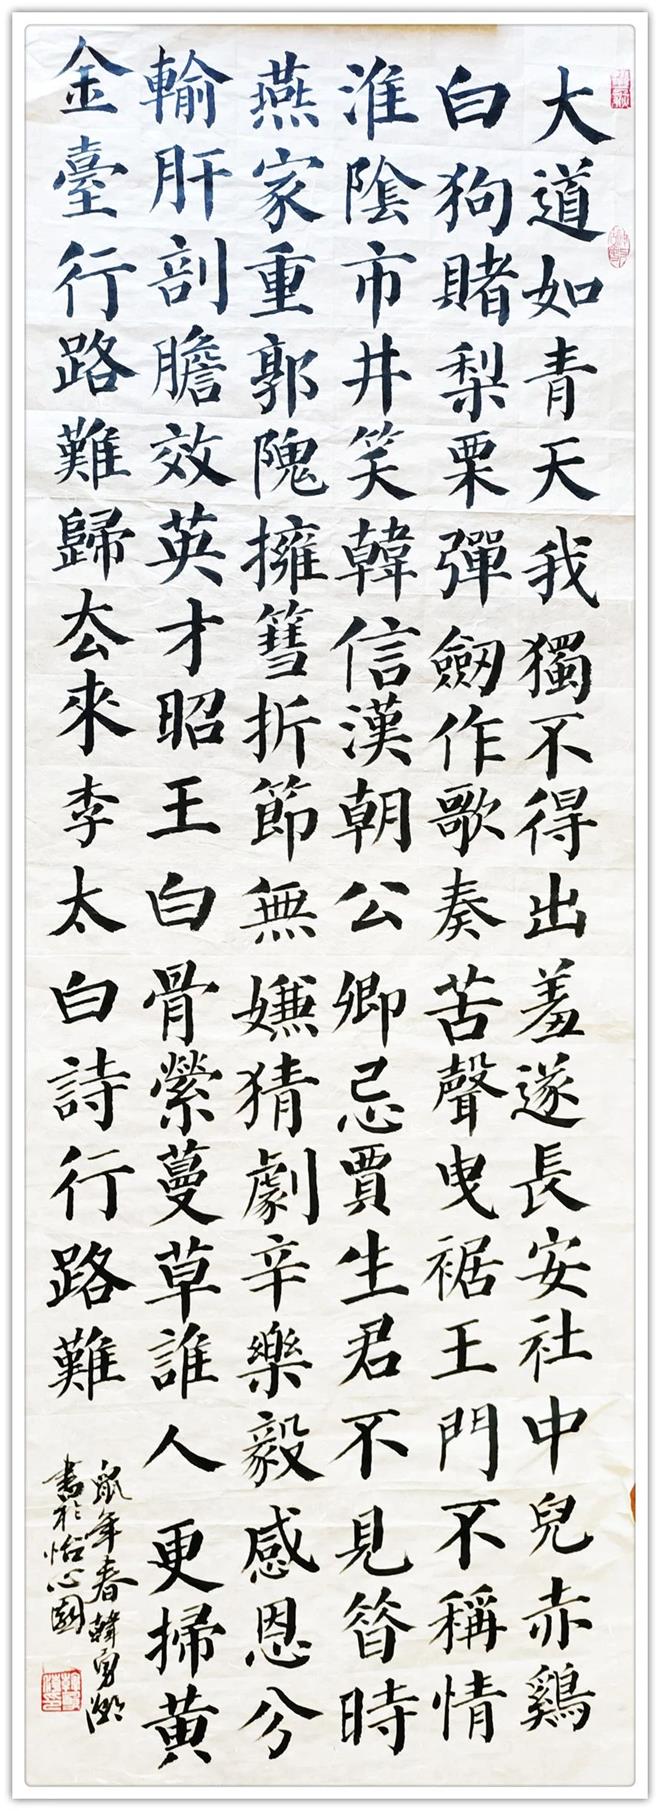 大道如青天我獨不得出羞遂長安社中兒赤鷄
白狗賭梨栗彈劒作歌奏苦聲曳裾王門不稱情
淮陰市井笑韓信漢朝公卿忌賈生君不見昝時
燕家重郭隗擁篲折節無嫌猜劇辛樂毅感恩兮
輸肝剖膽效英才昭王白骨縈蔓草誰人更掃黄
金臺行路難歸厺來李太白詩行路難
鼠年春韓勇
書於怡心園